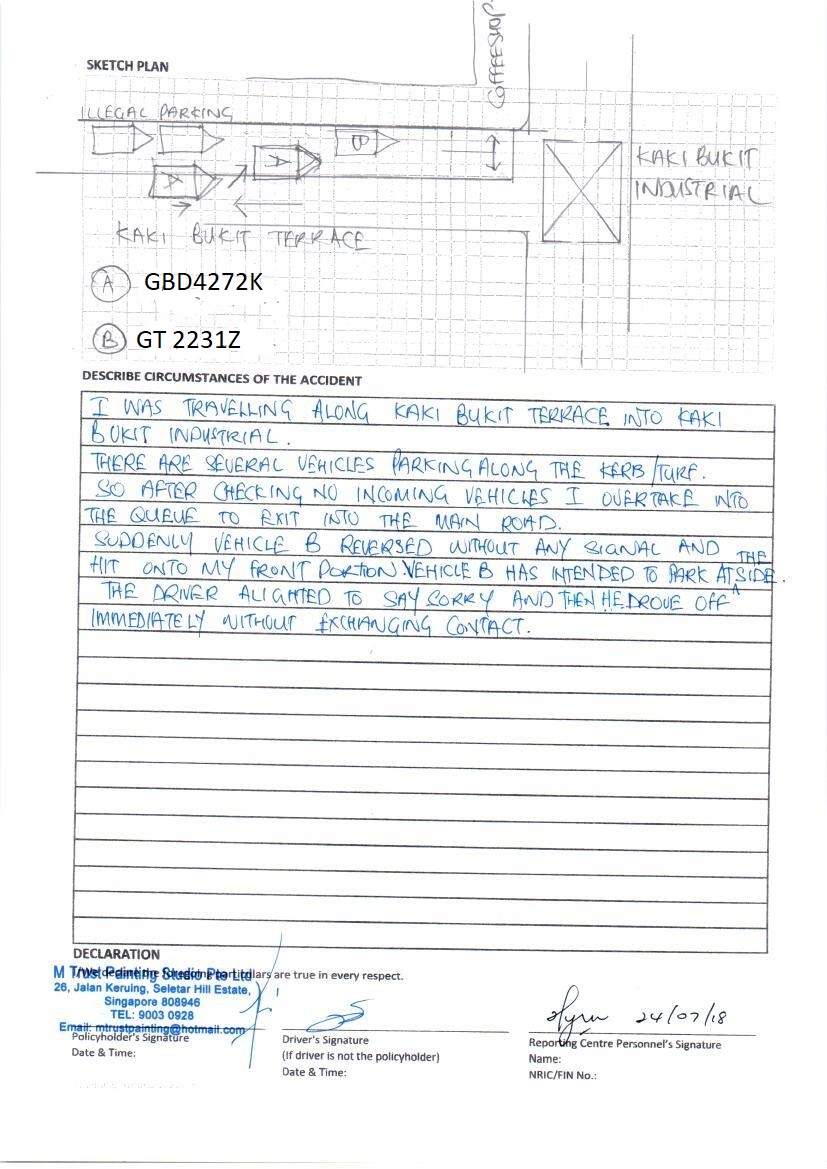 COFFEESHOP
SKETCH PLAN
ILLEGAL PARKING
B
A
A
KAKI BUKIT
INDUSTRIAL
KAKI BUKIT TERRACE
A GBD4272K
B GT 2231Z
DESCRIBE CIRCUMSTANCES OF THE ACCIDENT
I WAS TRAVELLING ALONG KAKI BUKIT TERRACE INTO KAKI
BUKIT INDUSTRIAL.
THERE ARE SEVERAL VEHICLES PARKING ALONG THE KERB/TURF.
SO AFTER CHECKING NO INCOMING VEHICLES I OVERTAKE INTO
THE QUEUE TO EXIT INTO THE MAIN ROAD.
SUDDENLY VEHICLE B REVERSED WITHOUT ANY SIGNAL AND
HIT ONTO MY FRONT PORTION. VEHICLE B HAS INTENDED TO PARK AT THE SIDE.
THE DRIVER ALIGHTED TO SAY SORRY AND THEN HE DROVE OFF
IMMEDIATELY WITHOUT EXCHANGING CONTACT.
DECLARATION
M Trust Painting Studio Pte Ltd
are true in every respect.
26, Jalan Keruing, Seletar Hill Estate,
Singapore 808946
TEL: 9003 0928
Email: mtrustpainting@hotmail.com
24/07/18
Policyholder's Signature
Date & Time:
Driver's Signature
(If driver is not the policyholder)
Date & Time:
Reporting Centre Personnel's Signature
Name:
NRIC/FIN No.: